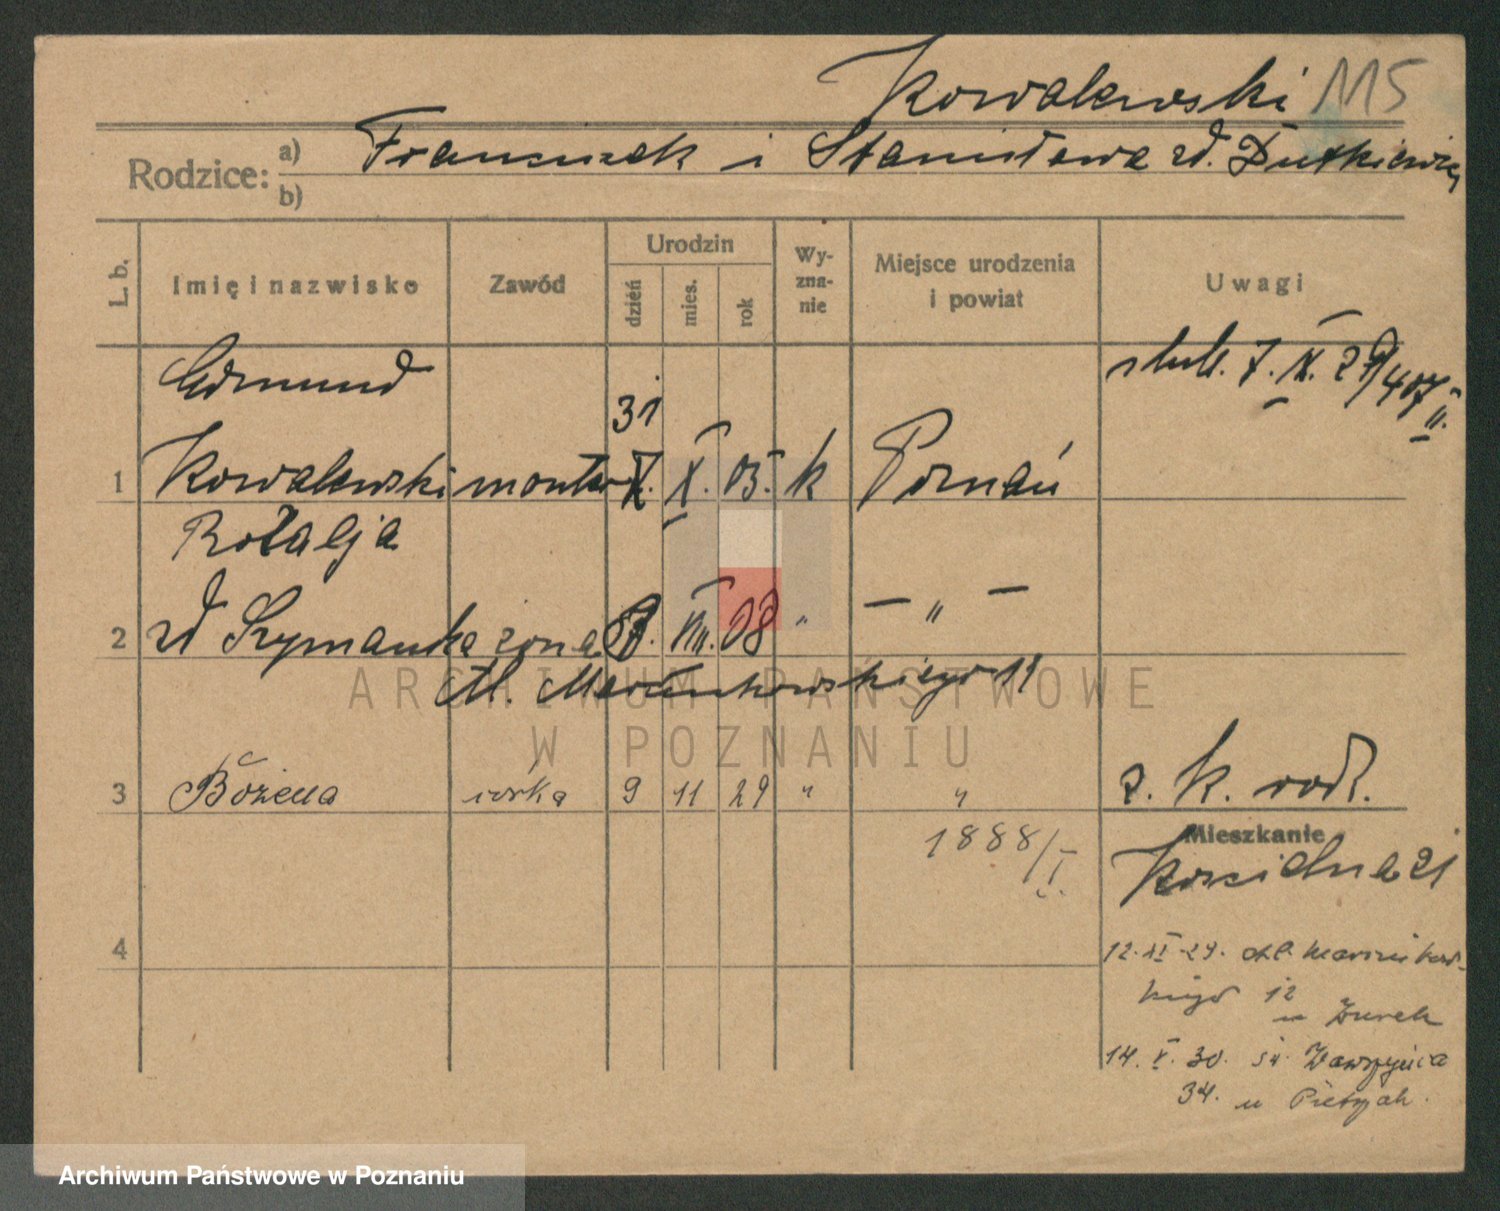 Kowalewski 115
Rodzice: a) Franciszek i Stanisława zd. Dutkiewicz
b)
L. b. Imię i nazwisko Zawód Urodzin dzień mies. rok Wyznanie Miejsce urodzenia i powiat Uwagi
Edmund ślub. 7. IX. 29/407 II.
31
1 Kowalewski monter X. 05. k Poznań
Rozalja
2 zd Szymańska żona 8. VIII. 08 " — " —
Al. Marcinkowskiego 11
3 Bożena córka 9 11 29 " " z. k. rodz.
1888/I. Mieszkanie
Kościelna 21
4 12. XI. 29. Al. Marcinkow-
kiego 12
u Żurek
14. V. 30. św. Wawrzyńca
34. u Pietrzak.
ARCHIWUM PAŃSTWOWE
W POZNANIU
Archiwum Państwowe w Poznaniu